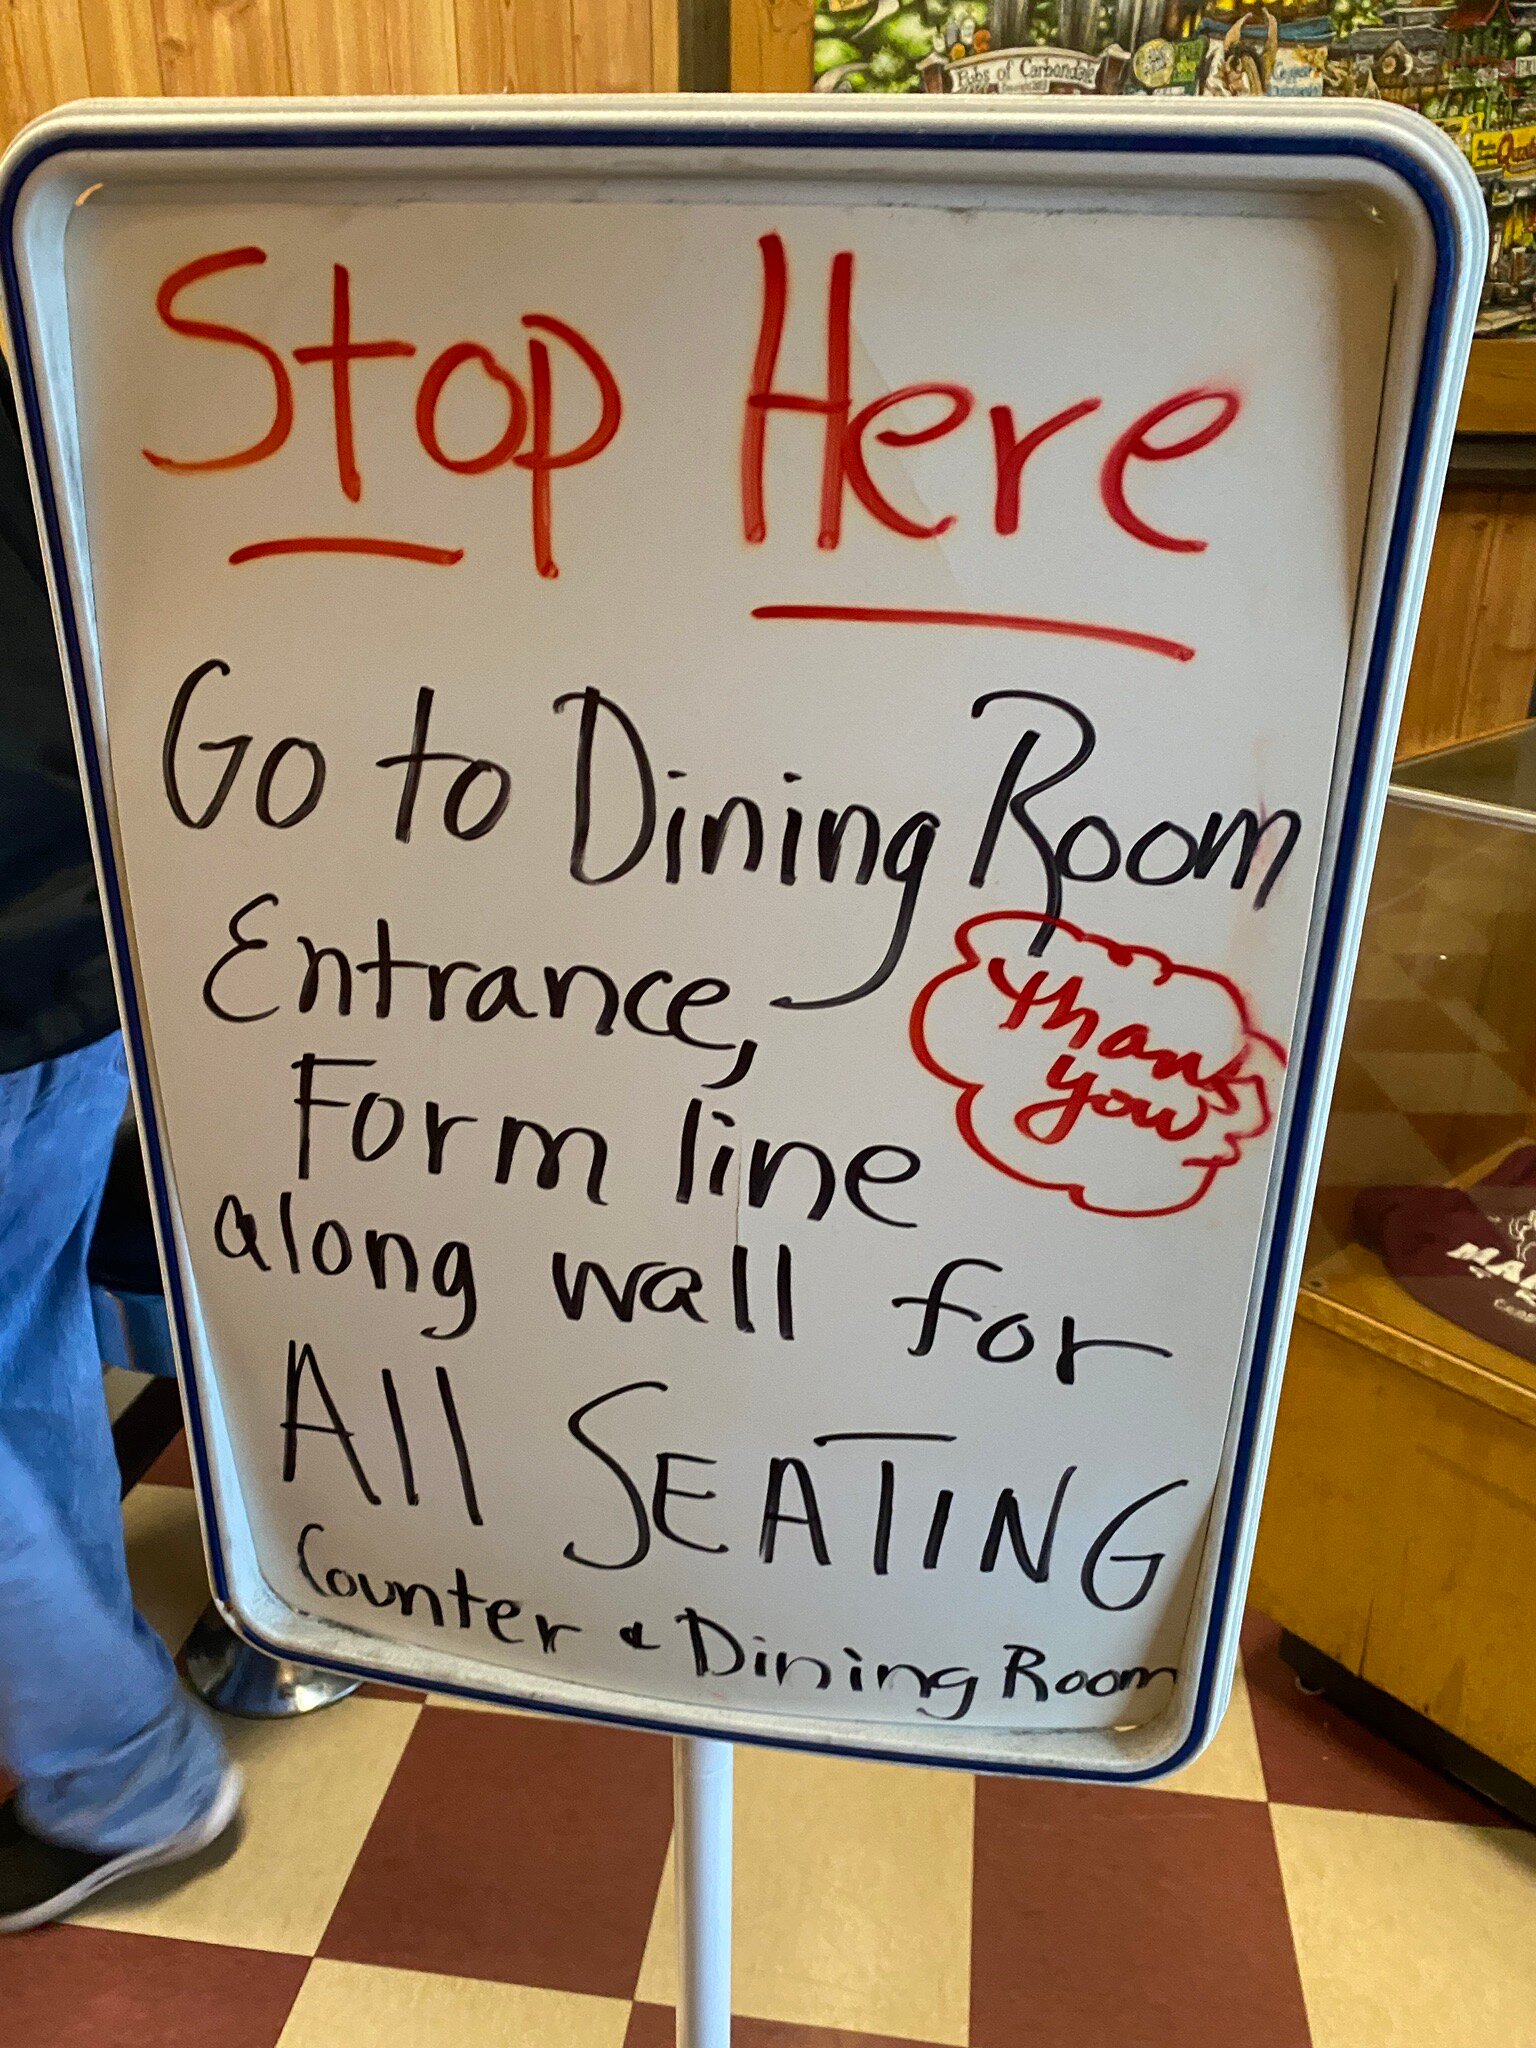 Pubs of Carbondale
Stop Here
Go to Dining Room
Entrance,
Thank
you
Form line
along wall for
All SEATING
Counter & Dining Room